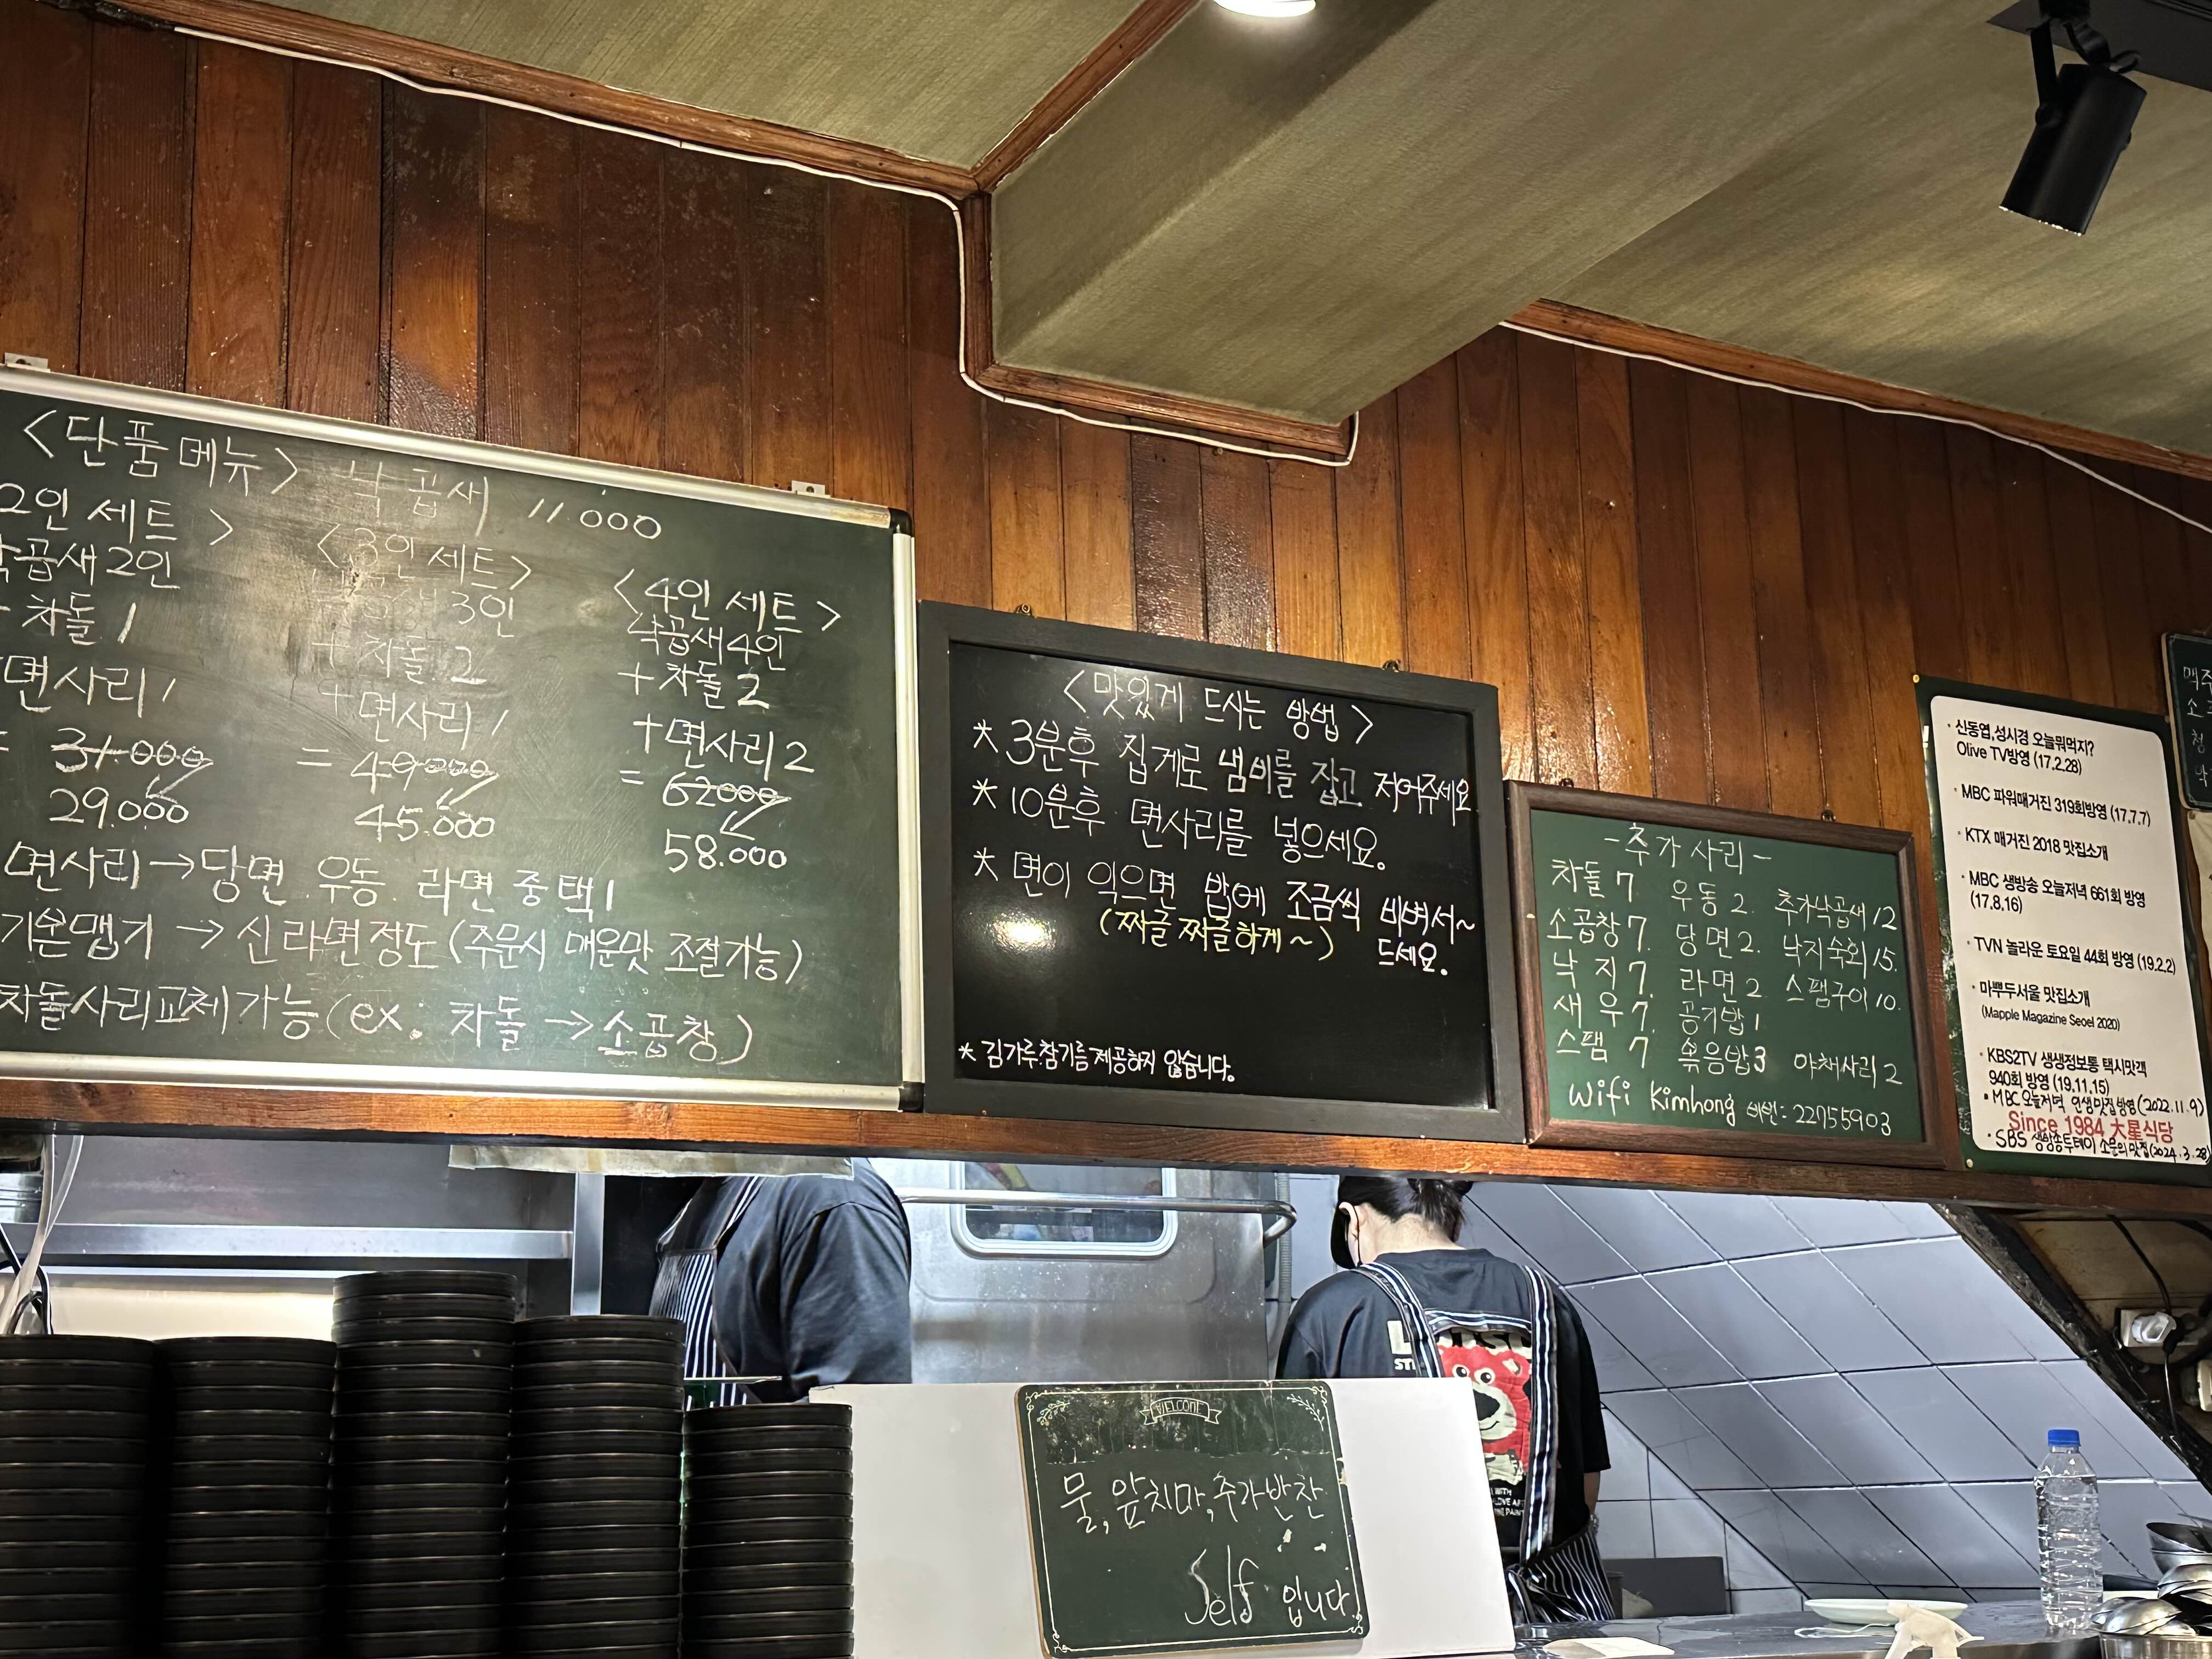 <단품메뉴> 낙곱새 11.000
2인 세트 >
낙곱새2인
차돌 1
면사리 1
= 31.000
29.000
<3인 세트>
3인
+ 차돌 2
+ 면사리 1
= 49.000
45.000
<4인 세트>
낙곱새4인
+ 차돌 2
+ 면사리 2
= 62000
58.000
면사리→당면. 우동. 라면 중 택1
기본맵기 → 신라면정도 (주문시 매운맛 조절가능)
차돌사리교체가능(ex. 차돌 →소곱창)
<맛있게 드시는 방법>
* 3분후 집게로 냄비를 잡고 저어주세요
* 10분후 면사리를 넣으세요.
* 면이 익으면 밥에 조금씩 비벼서~
(짜글짜글하게~) 드세요.
* 김가루.참기름 제공하지 않습니다.
-추가사리-
차돌 7 우동 2. 추가낙곱새 12
소곱창 7. 당면 2. 낙지숙회 15.
낙지 7. 라면 2. 스팸구이 10.
새우 7. 공기밥 1
스팸 7 볶음밥 3 야채사리 2
Wifi Kimhong 비번: 22755903
· 신동엽,성시경 오늘뭐먹지?
Olive TV방영 (17.2.28)
· MBC 파워매거진 319회방영 (17.7.7)
· KTX 매거진 2018 맛집소개
· MBC 생방송 오늘저녁 661회 방영
(17.8.16)
· TVN 놀라운 토요일 44회 방영 (19.2.2)
· 마뿌두서울 맛집소개
(Mapple Magazine Seoel 2020)
· KBS2TV 생생정보통 택시맛객
940회 방영 (19.11.15)
· MBC 오늘저녁 인생맛집방영(2022.11.9)
Since 1984 大星식당
· SBS 생방송투데이 소문의맛집(2024.3.28)
맥주
WELCOME
물, 앞치마, 추가반찬
Self 입니다.